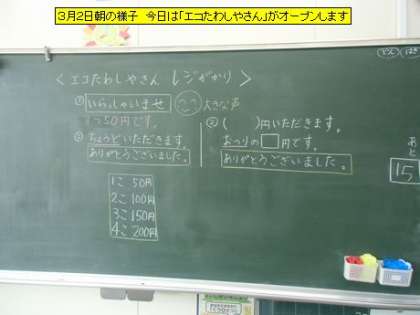 3月2日朝の様子　今日は「エコたわしやさん」がオープンします
＜エコたわしやさん レジがかり＞
① いらっしゃいませ 大きな声
1つ50円です。
② ちょうどいただきます。
ありがとうございました。
② (　　)円いただきます。
おつりの□円です。
ありがとうございました。
1こ 50円
2こ 100円
3こ 150円
4こ 200円
あと
15